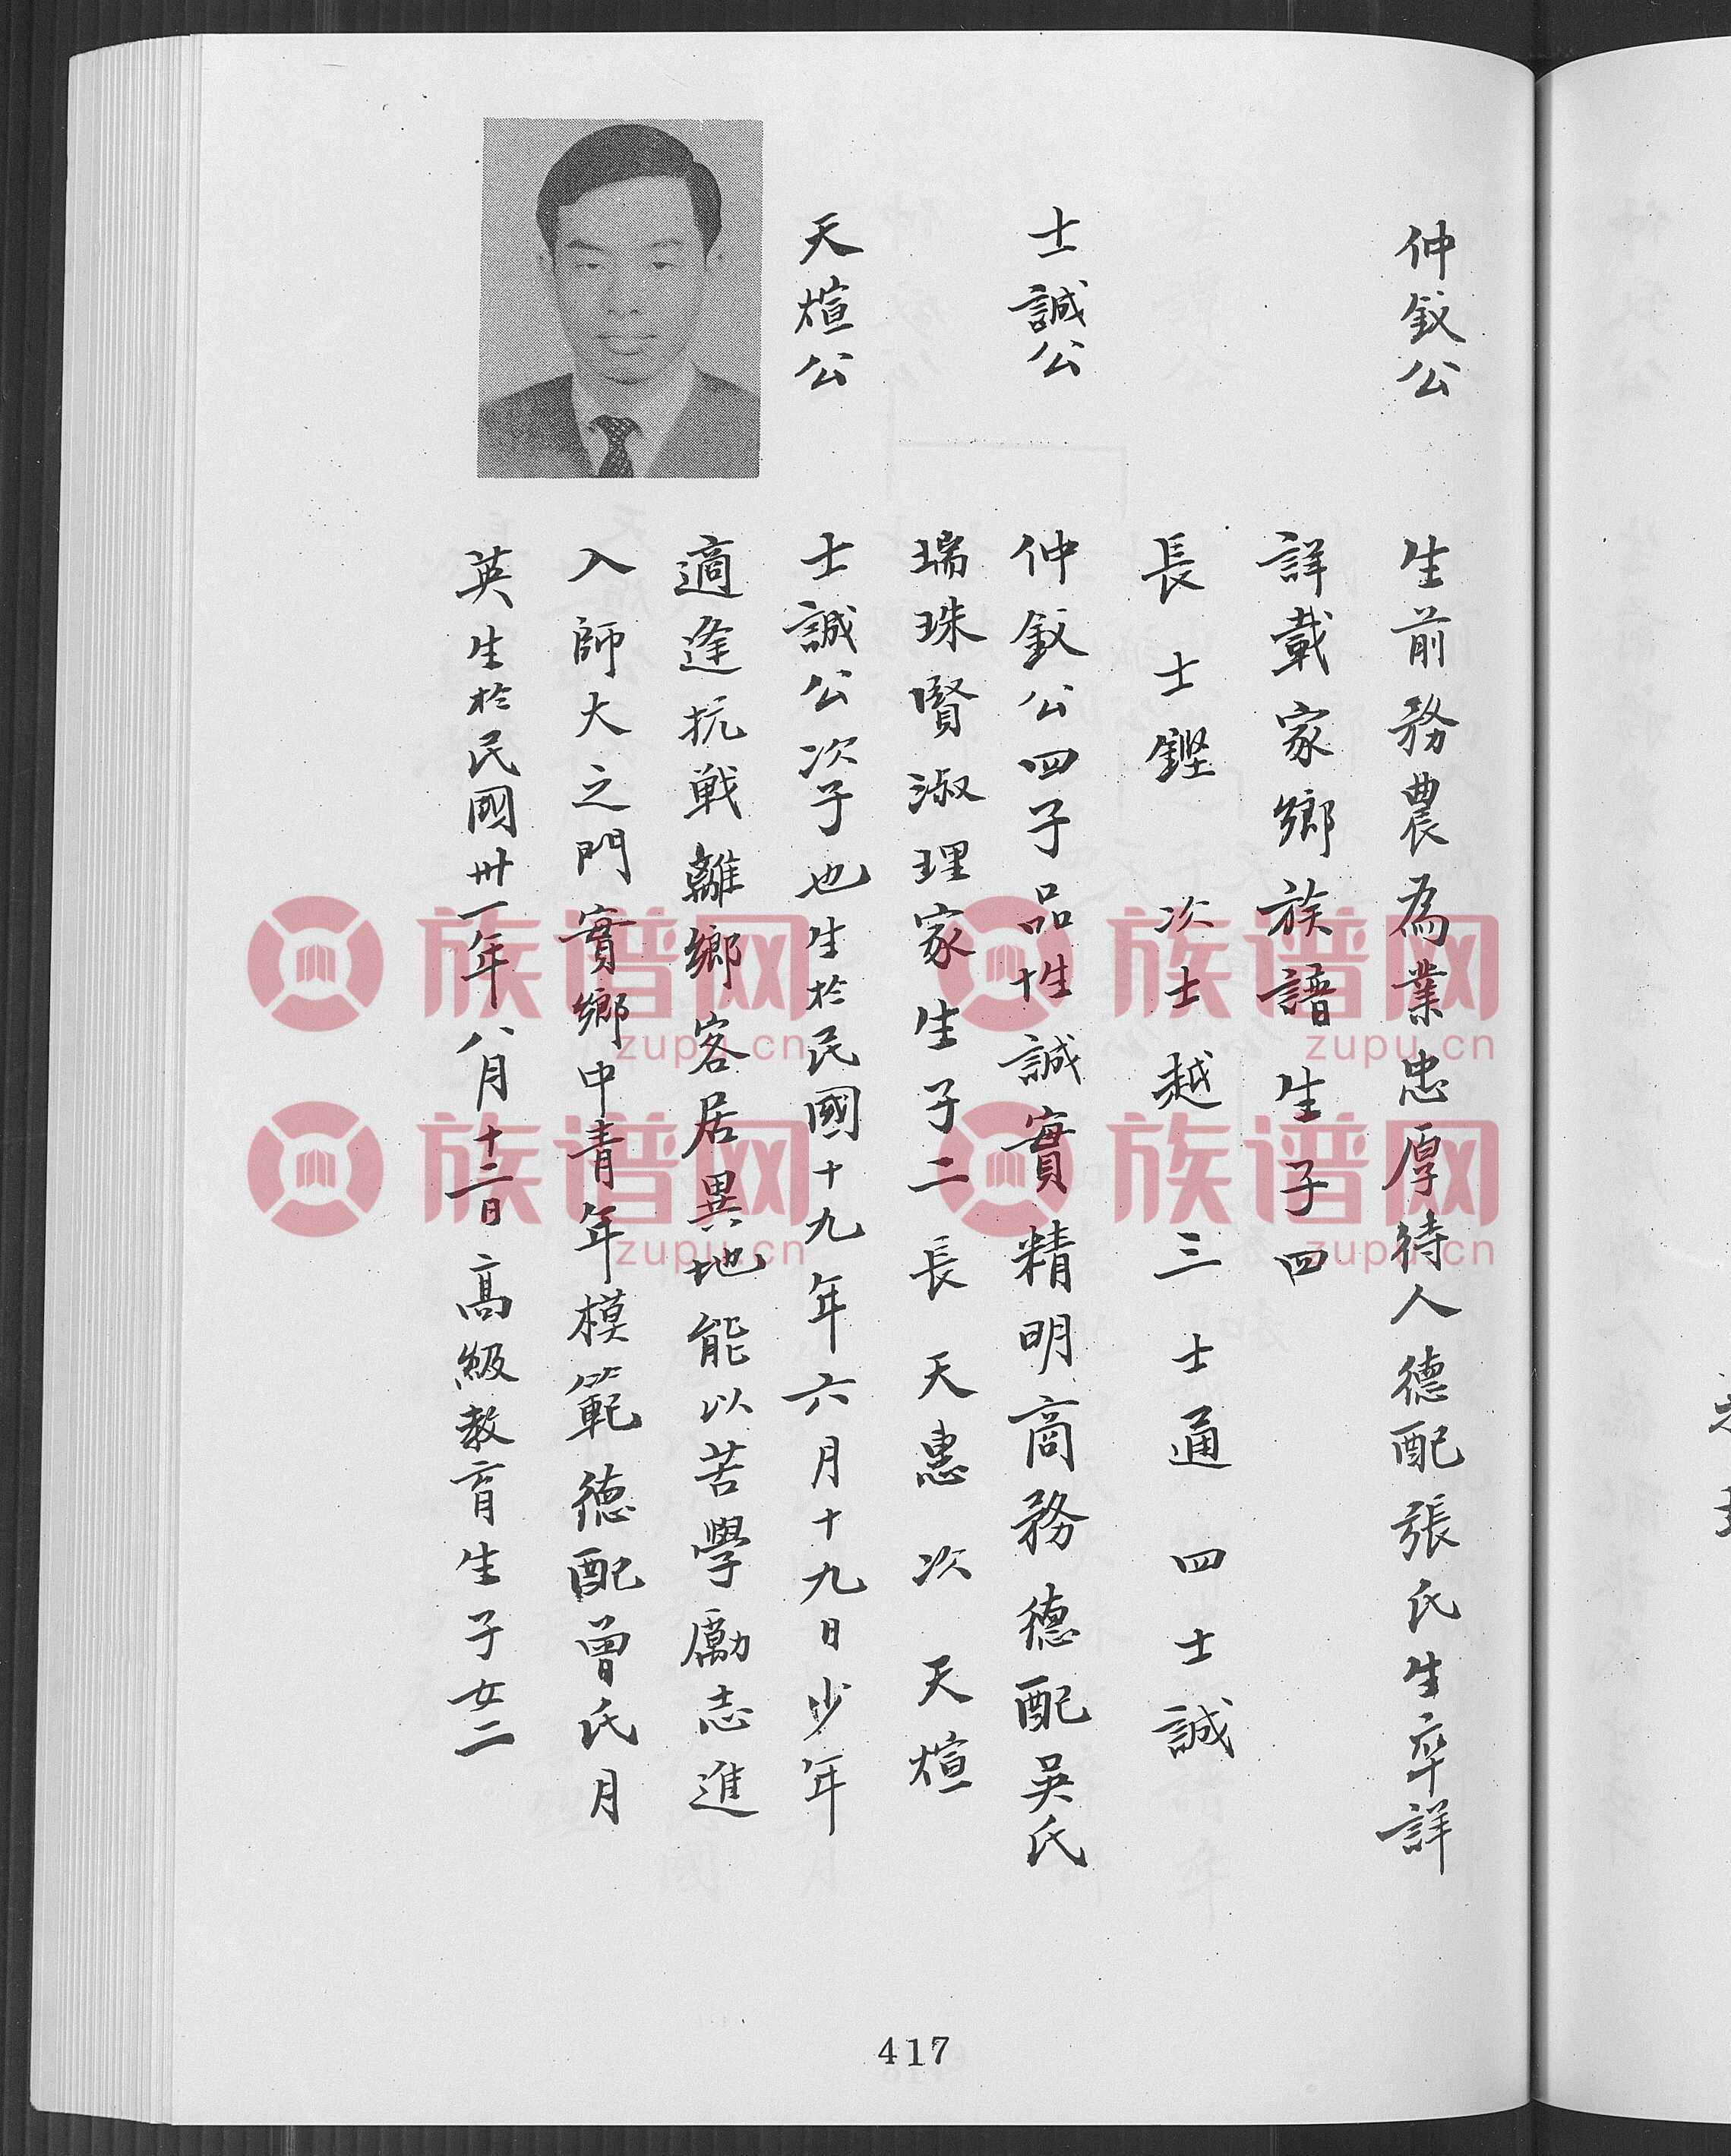 仲釵公
生前務農為業忠厚待人德配張氏生卒詳
詳載家鄉族譜生子四
長 士鏗 次士越 三士通 四士誠
士誠公
仲釵公四子品性誠實精明商務德配吳氏
瑞珠賢淑理家生子二長 天惠 次 天煊
天煊公
士誠公次子也生於民國十九年六月十九日少年
適逢抗戰離鄉客居異地能以苦學勵志進
入師大之門實鄉中青年模範德配曾氏月
英生於民國卅一年八月十二日高級教育生子女二
417
族谱网
zupu.cn
族谱网
zupu.cn
族谱网
zupu.cn
族谱网
zupu.cn